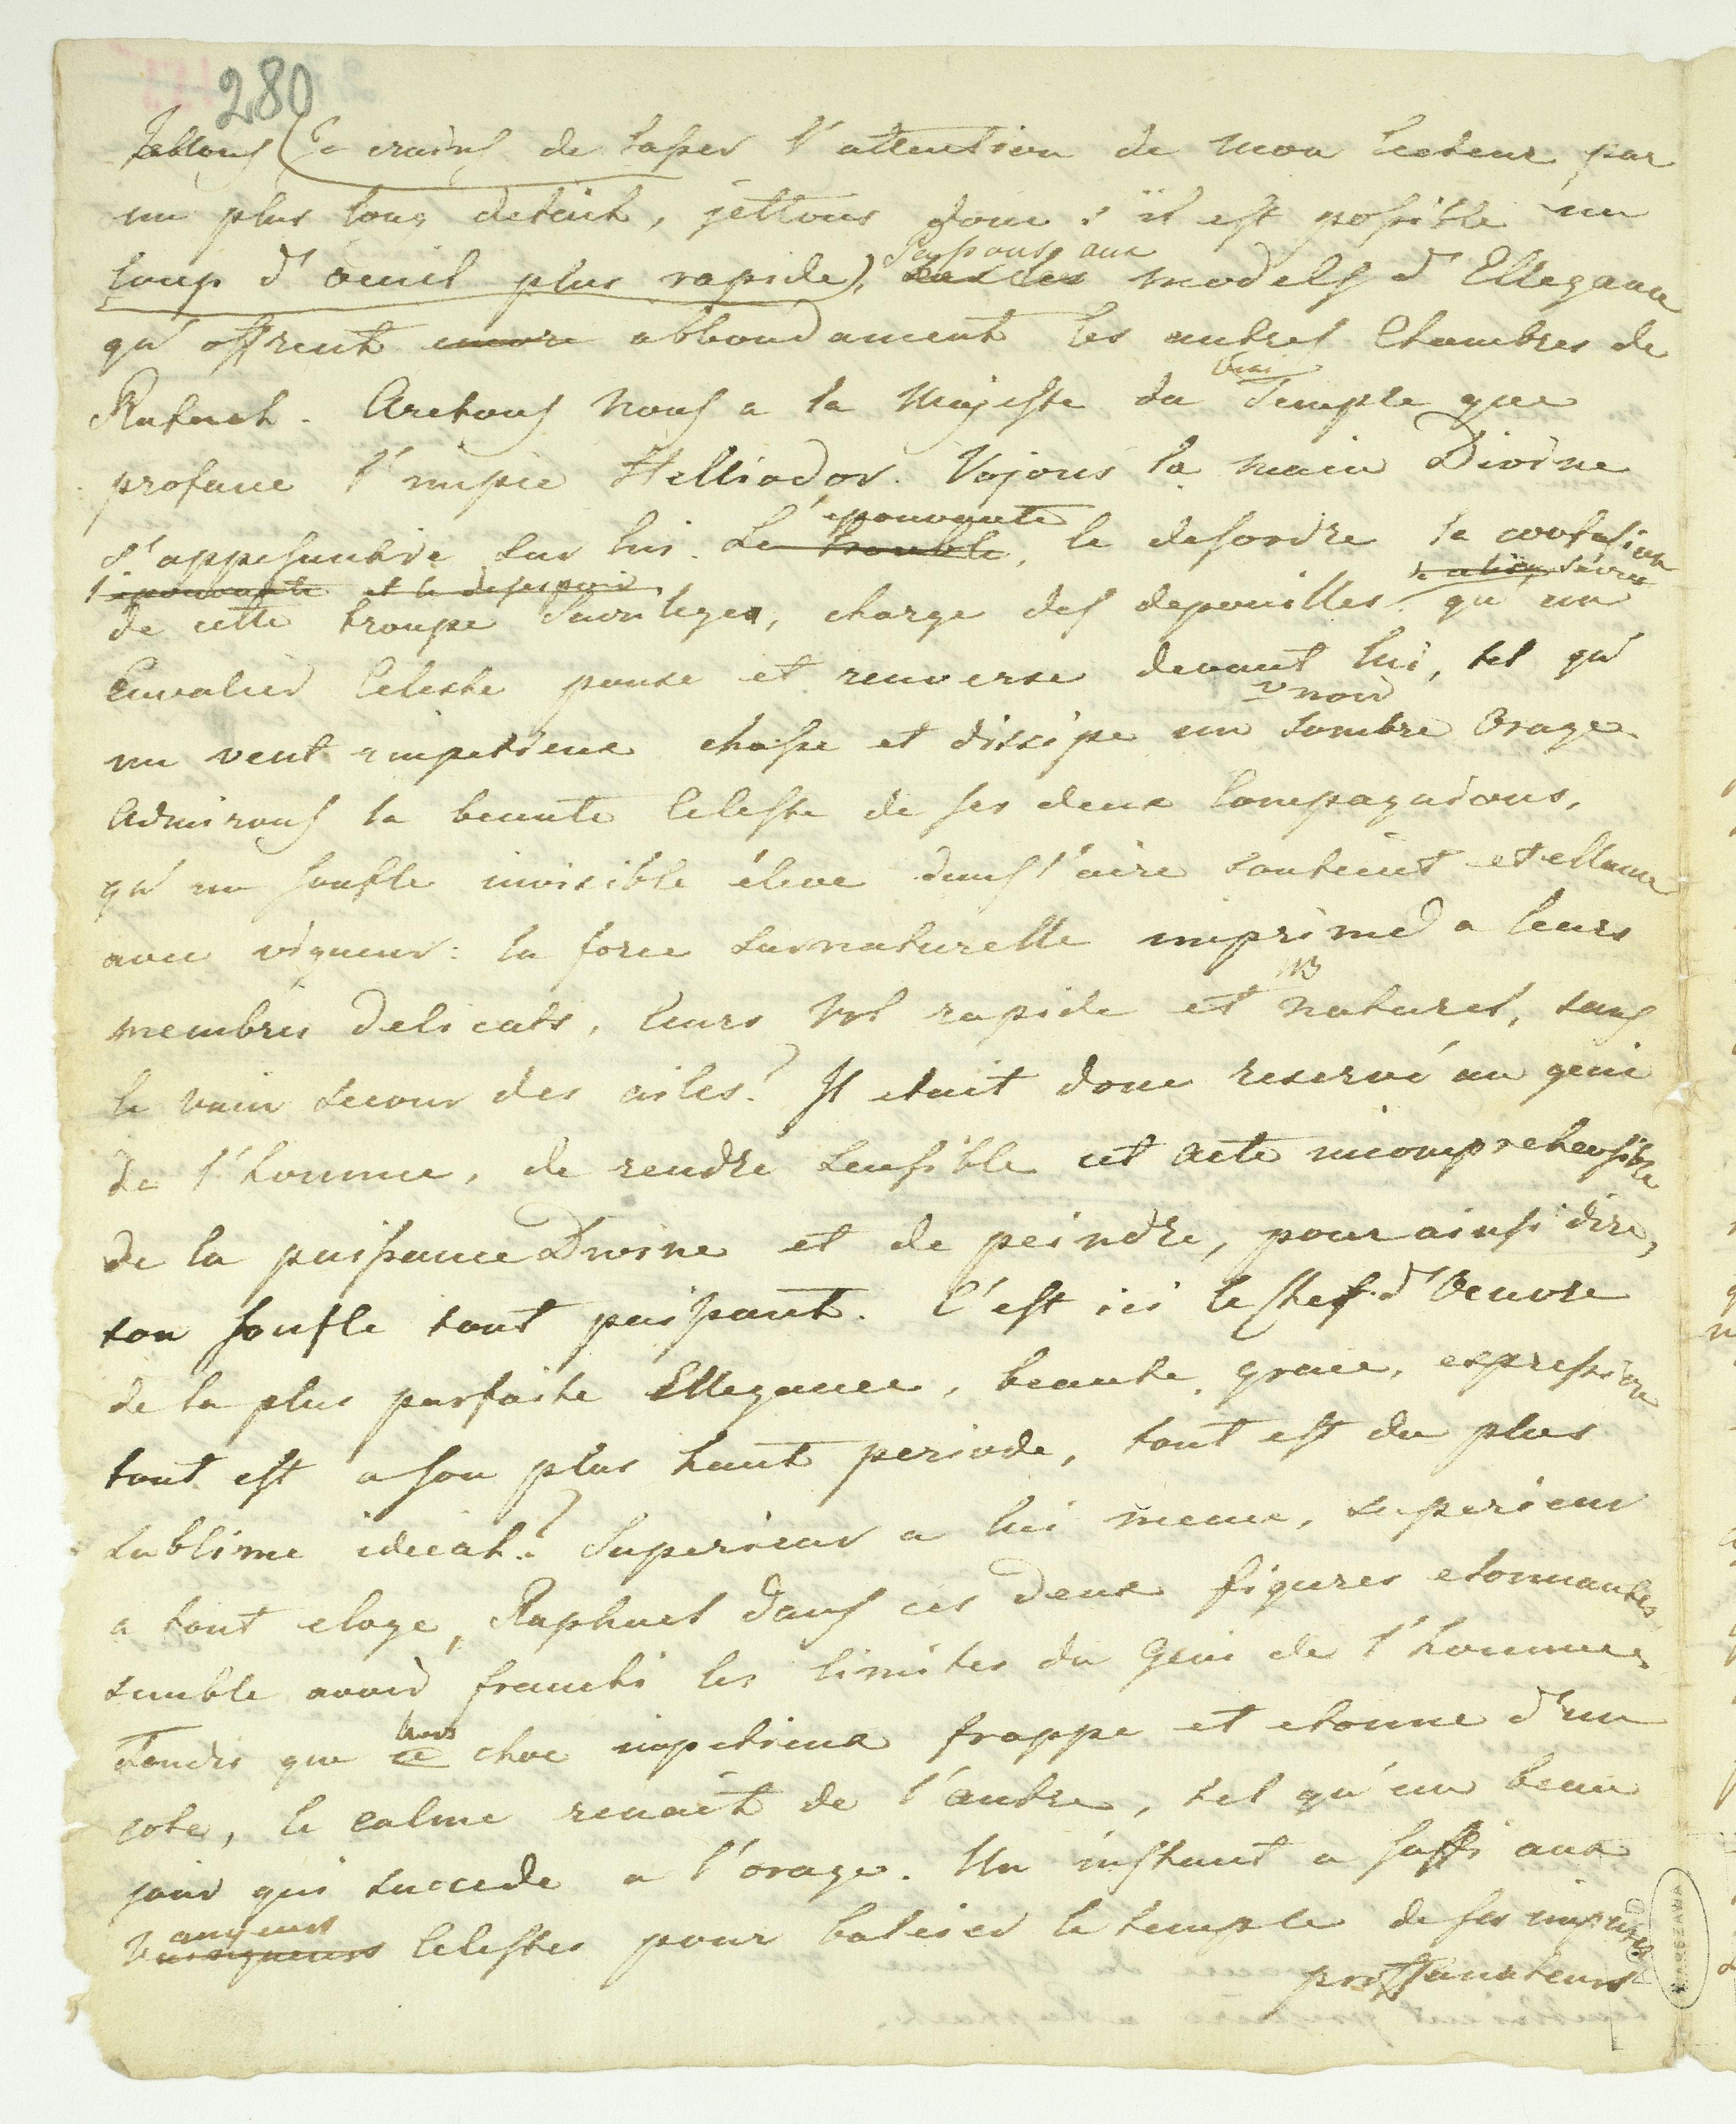 280
Jettons (Je crains de lasser l'attention de mon Lecteur par
un plus long detail, jettons donc s'il est possible un
Coup d'oeuil plus rapide), passons aux sur les models d'Ellegance
qu'offrent encore abbondament les autres Chambres de
Raphael. Aretons nous a la Majeste du Temple que
profane l'impie Helliodor. Vojons la main Divine
s'appesantir sur lui. Le trouble, epouvante le desordre la confusion
l'epouvante et le desespoir
de cette troupe Sacrilege, charge des depouilles qu'un
Cavalier Celeste pousse et renverse devant lui, tel qu'
noir
un vent impetieux chasse et dissipe un sombre Orage.
Admirons la beaute Celeste de ses deux Compagnions,
qu'un soufle invisible éleve dans l'aire soutient et ellance
avec vigueur: la force surnaturelle imprimé a leurs
membres delicats, leurs Vol rapide et naturel, sans
le vain secour des ailes? Il etait donc reservé au geni
de l'homme, de rendre sensible cet acte incomprehensible
de la puissance Divine et de peindre, pour ainsi dire,
son soufle tout puissant. C'est ici le Chef d'Oeuvre
de la plus parfaite Ellegance, beaute, grace, expression
tout est a son plus haut periode, tout est du plus
sublime ideeal? Superieur a lui meme, superieur
a tout eloge, Raphael dans ces deux figures etonnantes
semble avoir franchi les limites du Geni de l'homme
Tandis que ce leurs choc impetieux frappe et etonne d'un
cote, le calme renait de l'autre, tel qu'un beau
jour qui succede a l'orage. Un instant a suffi aux
Vainqueurs angeurs Celestes pour baleier le temple de ses impures
proffanateurs
WARSZAWA